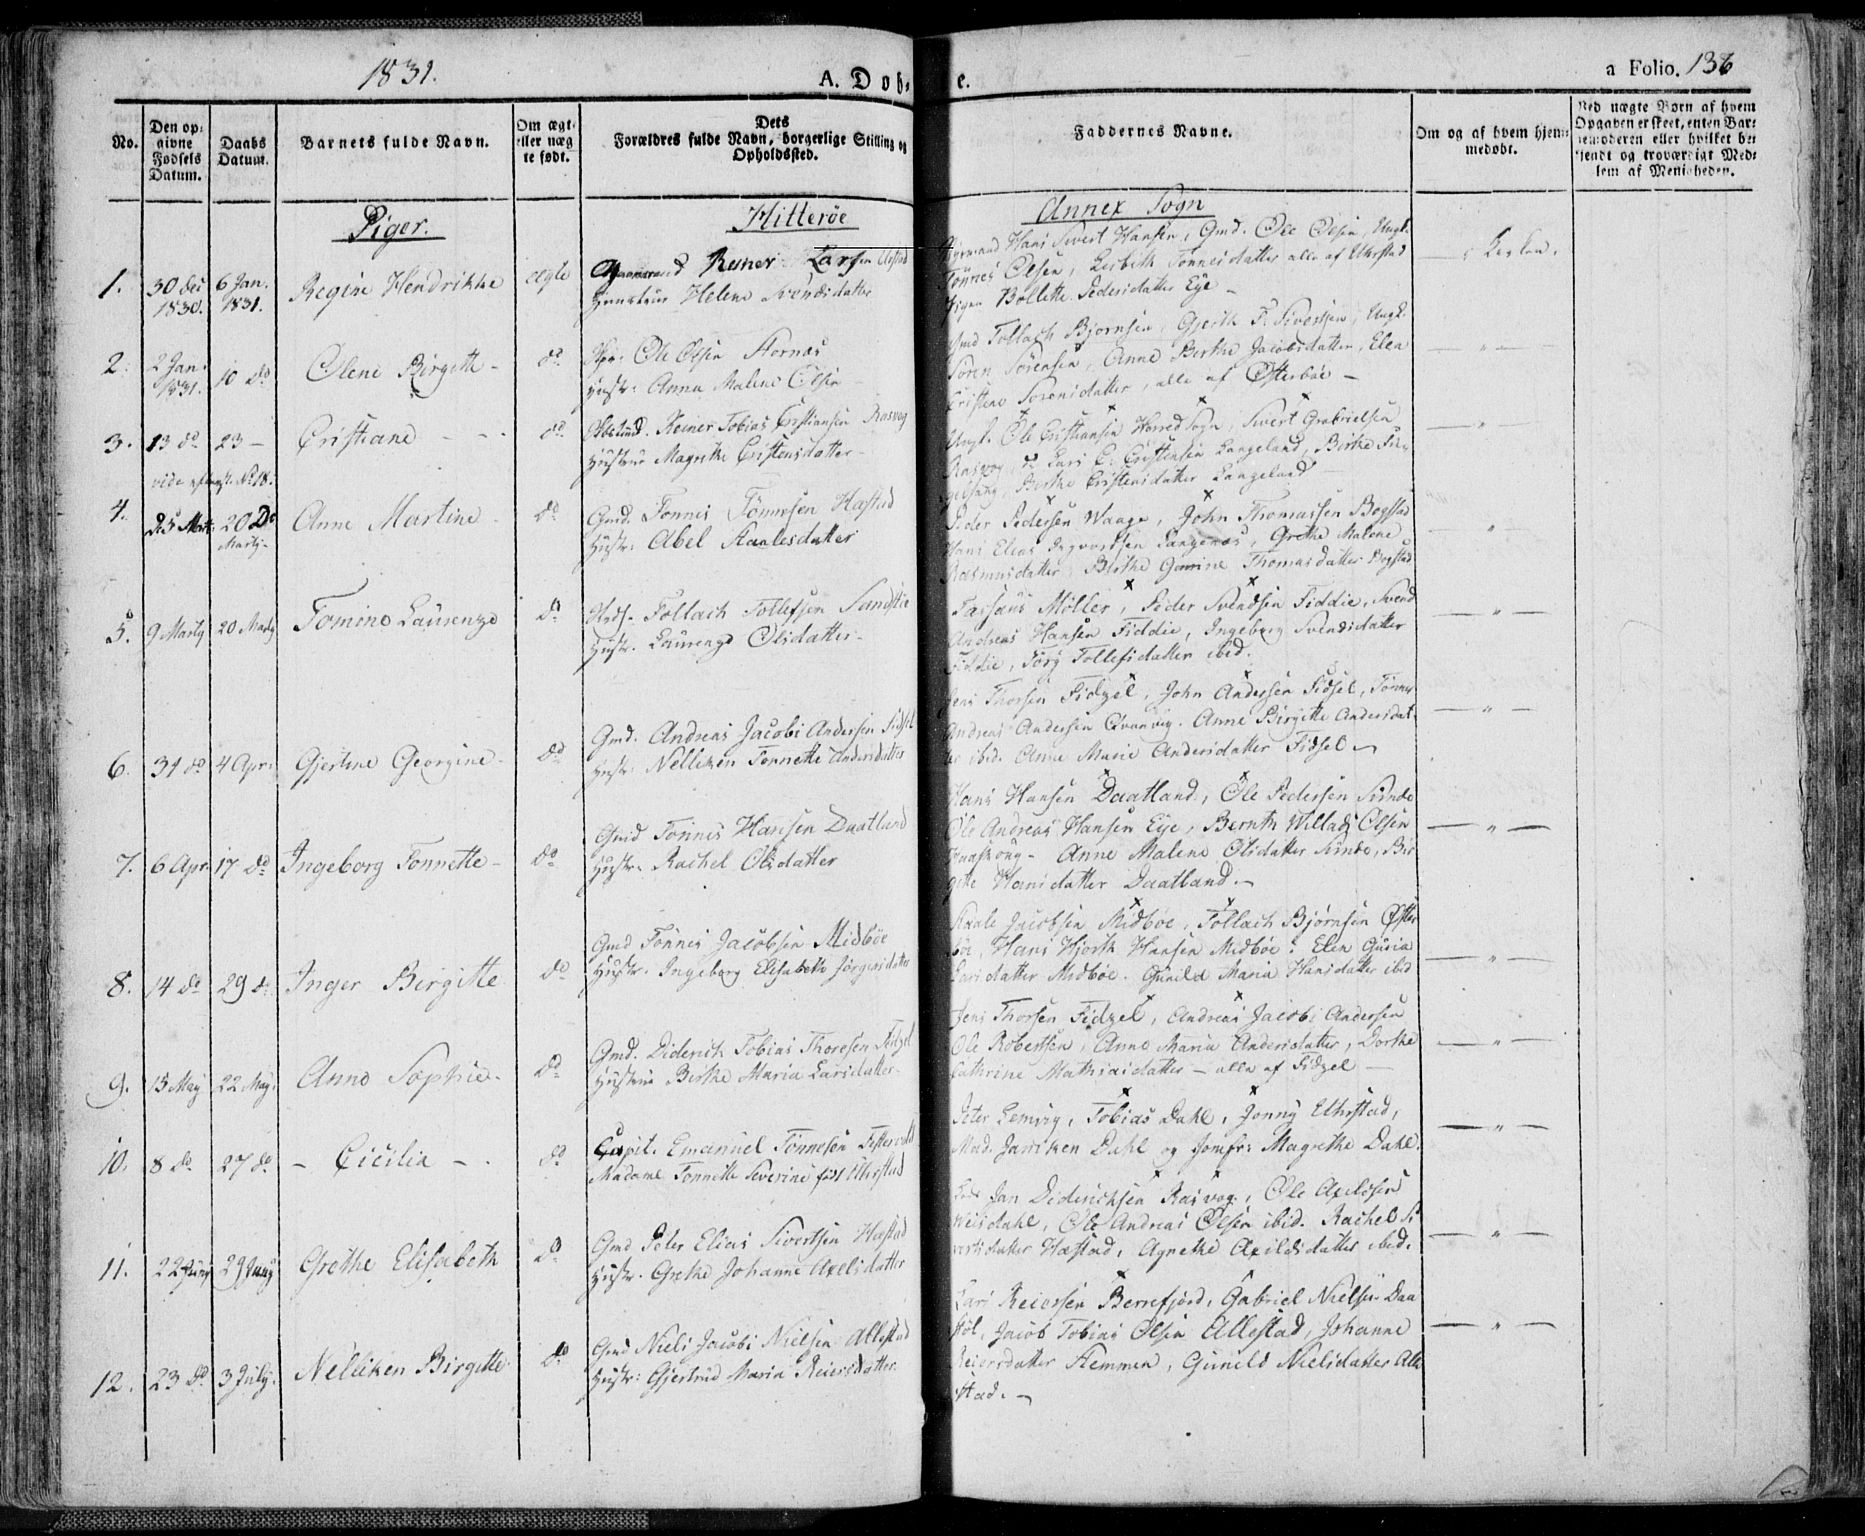 1831.
A. Dob-
e.
a Folio. 136
No.
Den op-
givne
Fødsels
Datum.
Daabs
Datum.
Barnets fulde Navn.
Om ægt-
eller næg
te født.
Dets
Forældres fulde Navn, borgerlige Stilling og
Opholdssted.
Faddernes Navne.
Om og af hvem hjem-
medøbt.
Ved uægte Børn af hvem
Opgaven er skeet, enten Bar-
nemoderen eller hvilket be-
kjendt og troværdigt Med-
lem af Menigheden.
Piger.
Hitterøe
Annex Sogn
1. 30 Dec 1830. 6 Jan. 1831. Regine Hendrikke ægte
Reiner Larsen
Hustrue Helene Svendsdatter
Hans Sivert Hansen, Gmd. Ole Olsen, Ungk.
Tønnes Olsen, Lisbeth Tønnesdatter alle af Uhrstad
Pigen Bollette Pedersdatter Eye –
2. 2 Jan. 1831. 10 do Olene Birgitte – do
Ole Olsen Stornæs
Hustr: Anna Malene Olsen
Gmd Tollach Bjørnsen, Gjerth F. Sivertsen, Ungk.
Søren Sørensen, Anne Berthe Jacobsdatter, Elen
Cristene Sørensdatter, alle af Østerbøe –
3. 13 do 23 – Cristiane – – do
Reiner Tobias Cristiansen Rasvog
Hustrue Magrethe Cristensdatter –
Ungk. Ole Cristiansen Herred Sogn, Sivert Gabrielsen
Rasvog, do Lars C. Cristensen Langeland, Berthe
Berthe Cristensdatter Langeland
4. d. 5 Marti 20 Do Marty – Anne Martine – do
Gmd. Tønnes Tønnesen Hæstad
Hustr: Abel Staalesdatter
Peder Pedersen Waage, John Thomassen Bogstad
Hans Elias Ingvordsen Langenæs, Grethe Malene
Rasmusdatter, Berthe Gurine Thomasdatter Bogstad
5. 9 Marty 20 Marty Tomine Laurenze do
Tollach Tollefsen Sandstie
Hustr. Laurenze Olsdatter –
Møller, Peder Svendsen Fiddie, Svend
Andreas Hansen Fiddie, Ingeborg Svendsdatter
Fiddie, Torg Tollefsdatter ibid.
6. 31 do 4 Apr: Gjertine Georgine – do
Gmd. Andreas Jacobi Andersen Fidsel
Hustr: Nelliken Tonnette Andersdatter
Jens Thorsen Fidzel, John Andersen Fidsel, Tønnes
Andreas Andersen Qvanvig. Anne Birgitte Andersdat-
ter ibid. Anne Marie Andersdatter Fidsel.
7. 6 Apr. 17 do Ingeborg Tonnette – do
Gmd Tønnes Hansen Daatland
Hustr: Rachel Olsdatter
Hans Hansen Daatland, Ole Pedersen Sunde
Ole Andreas Hansen Eye, Bernth Willads Olsen
Anne Malene Olsdatter Sunde, Bir
gitte Hansdatter Daatland. –
8. 14 do 29 do Inger Birgitte do
Gmd Tønnes Jacobsen Midbøe
Hustr. Ingeborg Elisabeth Jørgensdatter
Staale Jacobsen Midbøe, Tollach Bjørnsen Øster
bøe, Hans Hjorth Hansen Midbøe. Elen Gusia
Larsdatter Midbøe. Gunild Maria Hansdatter ibid
9. 15 May 22 May. Anne Sophie. do
Gmd. Diderich Tobias Thoresen Fidzel
Hustrue Berthe Maria Larsdatter.
Jens Thorsen Fidzel, Andreas Jacobi Andersen
Ole Robertsen, Anne Maria Andersdatter, Dorthe
Cathrine Mathiasdatter – alle af Fidzel –
10. 8 do. 27 do – Cicilia – . do
Capit. Emanuel Tønnesen
Madame Tonnette Severine født Uhrstad
Peter Lemvig, Tobias Dahl, Jonny Uhrstad,
Mad. Janiken Dahl og Jomfr: Magrethe Dahl.
11. 22 Juny 29 Juny Grethe Elisabeth do
Gmd Peter Elias Sivertsen Hæstad
Hustr. Grethe Johanne Axelsdatter
Jan Didericksen Rasvog, Ole Axelsen
Weisdahl, Ole Andreas Olsen ibid. Rachel Si
vertsdatter Hæstad, Agnethe Axildsdatter ibid.
12. 23 do 3 July. Nelliken Birgitte do
Gmd Niels Jacobi Nielsen Allestad
Hustr: Gjertrud Maria Reiersdatter
Lars Reiersen Bernefjord, Gabriel Nielsen Daa
støl, Jacob Tobias Olsen Allestad, Johanne
Reiersdatter Stemmen, Gunild Nielsdatter Alle
stad. –